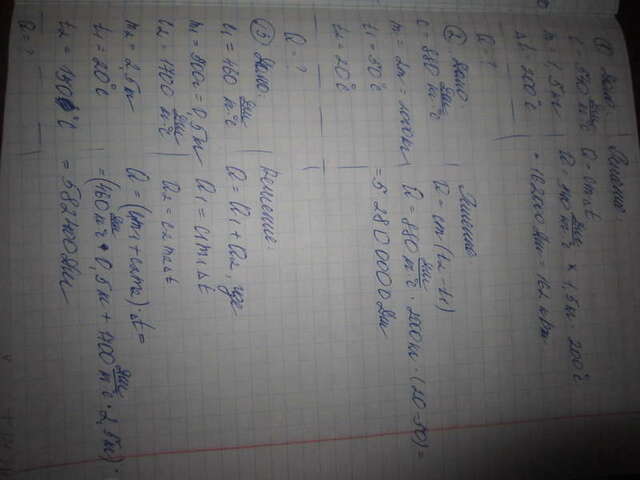 ① Дано:
c 540 Дж/кг·°C
m = 1,5 кг
Δt = 200°C
Q = ?
Решение:
Q = cmΔt
Q = 540 Дж/кг·°C × 1,5 кг · 200°C
= 162000 Дж = 162 кДж
② Дано
c = 880 Дж/кг·°C
m = 2т = 2000 кг
t1 = 50°C
t2 = 20°C
Q = ?
Решение
Q = cm(t2 - t1)
Q = 880 Дж/кг·°C · 2000 кг · (20-50) =
= 5280 0000 Дж
③ Дано:
c1 = 460 Дж/кг·°C
m1 = 500г = 0,5 кг
c2 = 1700 Дж/кг·°C
m2 = 2,5 кг
t1 = 20°C
t2 = 150°C
Q = ?
Решение:
Q = Q1 + Q2, где
Q1 = c1m1Δt
Q2 = c2m2Δt
Q = (c1m1 + c2m2)·t =
= (460 Дж/кг·°C · 0,5 кг + 1700 Дж/кг·°C · 2,5 кг) ·
= 582400 Дж